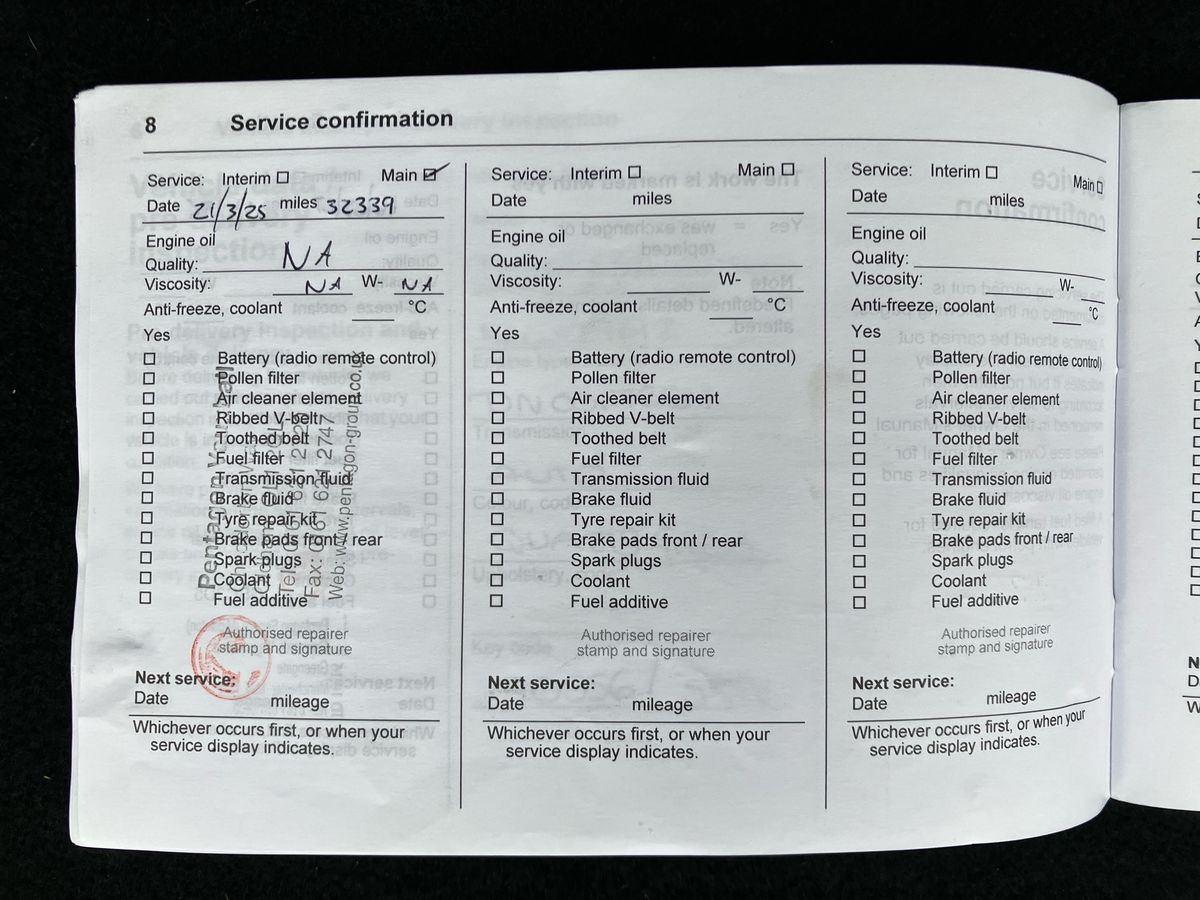 8 Service confirmation
Service: Interim ☐ Main ☑
Date 21/3/25 miles 32339
Engine oil
Quality: NA
Viscosity: NA W- NA
Anti-freeze, coolant °C
Yes
☐ Battery (radio remote control)
☐ Pollen filter
☐ Air cleaner element
☐ Ribbed V-belt
☐ Toothed belt
☐ Fuel filter
☐ Transmission fluid
☐ Brake fluid
☐ Tyre repair kit
☐ Brake pads front / rear
☐ Spark plugs
☐ Coolant
☐ Fuel additive
Pentagon Vauxhall
Fax: 0161 621 2747
Web: www.pentagon-group.co.uk
Authorised repairer
stamp and signature
Next service:
Date mileage
Whichever occurs first, or when your
service display indicates.
Service: Interim ☐ Main ☐
Date miles
Engine oil
Quality:
Viscosity: W-
Anti-freeze, coolant °C
Yes
☐ Battery (radio remote control)
☐ Pollen filter
☐ Air cleaner element
☐ Ribbed V-belt
☐ Toothed belt
☐ Fuel filter
☐ Transmission fluid
☐ Brake fluid
☐ Tyre repair kit
☐ Brake pads front / rear
☐ Spark plugs
☐ Coolant
☐ Fuel additive
Authorised repairer
stamp and signature
Next service:
Date mileage
Whichever occurs first, or when your
service display indicates.
Service: Interim ☐ Main ☐
Date miles
Engine oil
Quality:
Viscosity: W-
Anti-freeze, coolant °C
Yes
☐ Battery (radio remote control)
☐ Pollen filter
☐ Air cleaner element
☐ Ribbed V-belt
☐ Toothed belt
☐ Fuel filter
☐ Transmission fluid
☐ Brake fluid
☐ Tyre repair kit
☐ Brake pads front / rear
☐ Spark plugs
☐ Coolant
☐ Fuel additive
Authorised repairer
stamp and signature
Next service:
Date mileage
Whichever occurs first, or when your
service display indicates.